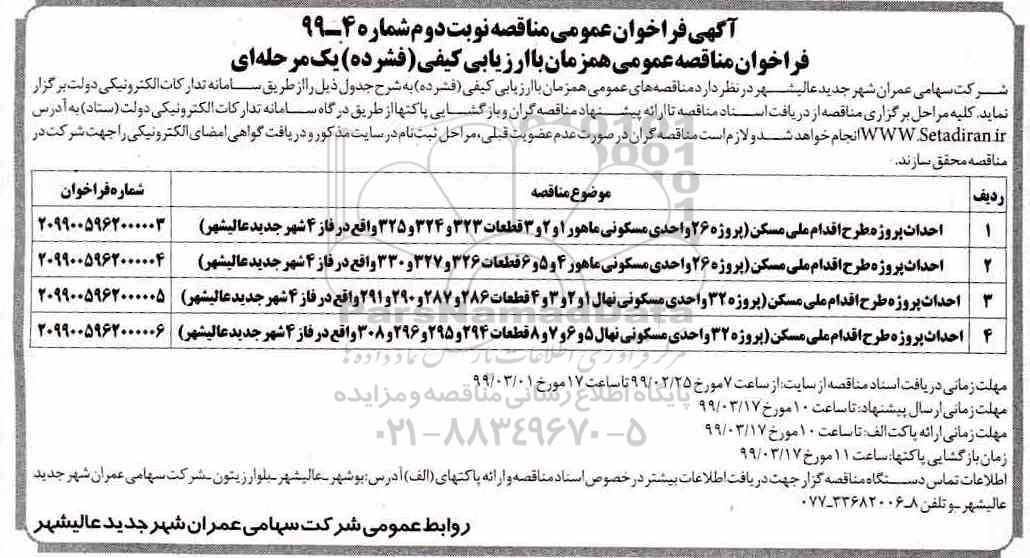 آگهی فراخوان عمومی مناقصه نوبت دوم شماره ۴ـ۹۹
فراخوان مناقصه عمومی همزمان با ارزیابی کیفی (فشرده) یک مرحله‌ای
شرکت سهامی عمران شهر جدید عالیشهر در نظر دارد مناقصه‌های عمومی همزمان با ارزیابی کیفی (فشرده) به شرح جدول ذیل را از طریق سامانه تدارکات الکترونیکی دولت برگزار
نماید. کلیه مراحل برگزاری مناقصه از دریافت اسناد مناقصه تا ارائه پیشنهاد مناقصه گران و بازگشایی پاکتها از طریق درگاه سامانه تدارکات الکترونیکی دولت (ستاد) به آدرس
WWW.Setadiran.ir انجام خواهد شد و لازم است مناقصه گران در صورت عدم عضویت قبلی، مراحل ثبت نام در سایت مذکور و دریافت گواهی امضای الکترونیکی را جهت شرکت در
مناقصه محقق سازند.
ردیف موضوع مناقصه شماره فراخوان
۱ احداث پروژه طرح اقدام ملی مسکن (پروژه ۲۶ واحدی مسکونی ماهور ۱ و ۲ و ۳ قطعات ۳۲۳ و ۳۲۴ و ۳۲۵ واقع در فاز ۴ شهر جدید عالیشهر) ۲۰۹۹۰۰۵۹۶۲۰۰۰۰۰۳
۲ احداث پروژه طرح اقدام ملی مسکن (پروژه ۲۶ واحدی مسکونی ماهور ۴ و ۵ و ۶ قطعات ۳۲۶ و ۳۲۷ و ۳۳۰ واقع در فاز ۴ شهر جدید عالیشهر) ۲۰۹۹۰۰۵۹۶۲۰۰۰۰۰۴
۳ احداث پروژه طرح اقدام ملی مسکن (پروژه ۳۲ واحدی مسکونی نهال ۱ و ۲ و ۳ و ۴ قطعات ۲۸۶ و ۲۸۷ و ۲۹۰ و ۲۹۱ واقع در فاز ۴ شهر جدید عالیشهر) ۲۰۹۹۰۰۵۹۶۲۰۰۰۰۰۵
۴ احداث پروژه طرح اقدام ملی مسکن (پروژه ۳۲ واحدی مسکونی نهال ۵ و ۶ و ۷ و ۸ قطعات ۲۹۴ و ۲۹۵ و ۲۹۶ و ۳۰۸ واقع در فاز ۴ شهر جدید عالیشهر) ۲۰۹۹۰۰۵۹۶۲۰۰۰۰۰۶
ParsNamadData
مرکز فرآوری اطلاعات پارس نماد داده ها
مهلت زمانی دریافت اسناد مناقصه از سایت: از ساعت ۷ مورخ ۹۹/۰۲/۲۵ تا ساعت ۱۷ مورخ ۹۹/۰۳/۰۱
پایگاه اطلاع رسانی مناقصه و مزایده
مهلت زمانی ارسال پیشنهاد: تا ساعت ۱۰ مورخ ۹۹/۰۳/۱۷
مهلت زمانی ارائه پاکت الف: تا ساعت ۱۰ مورخ ۹۹/۰۳/۱۷
۰۲۱-۸۸۳۴۹۶۷۰-۵
زمان بازگشایی پاکتها: ساعت ۱۱ مورخ ۹۹/۰۳/۱۷
اطلاعات تماس دستگاه مناقصه گزار جهت دریافت اطلاعات بیشتر در خصوص اسناد مناقصه و ارائه پاکتهای (الف) آدرس: بوشهر ـ عالیشهر ـ بلوار زیتون ـ شرکت سهامی عمران شهر جدید
عالیشهر ـ و تلفن ۸ـ۳۳۶۸۲۰۰۶ـ۰۷۷
روابط عمومی شرکت سهامی عمران شهر جدید عالیشهر